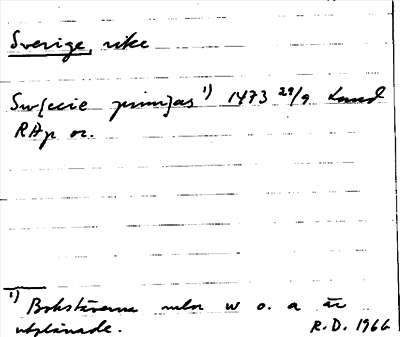 Sverige, rike
Sw[ecie prim]as 1) 1473 29/9 Lund
RAp or.
1) Bokstäverna mln w o. a är
utplånade. R.D. 1966